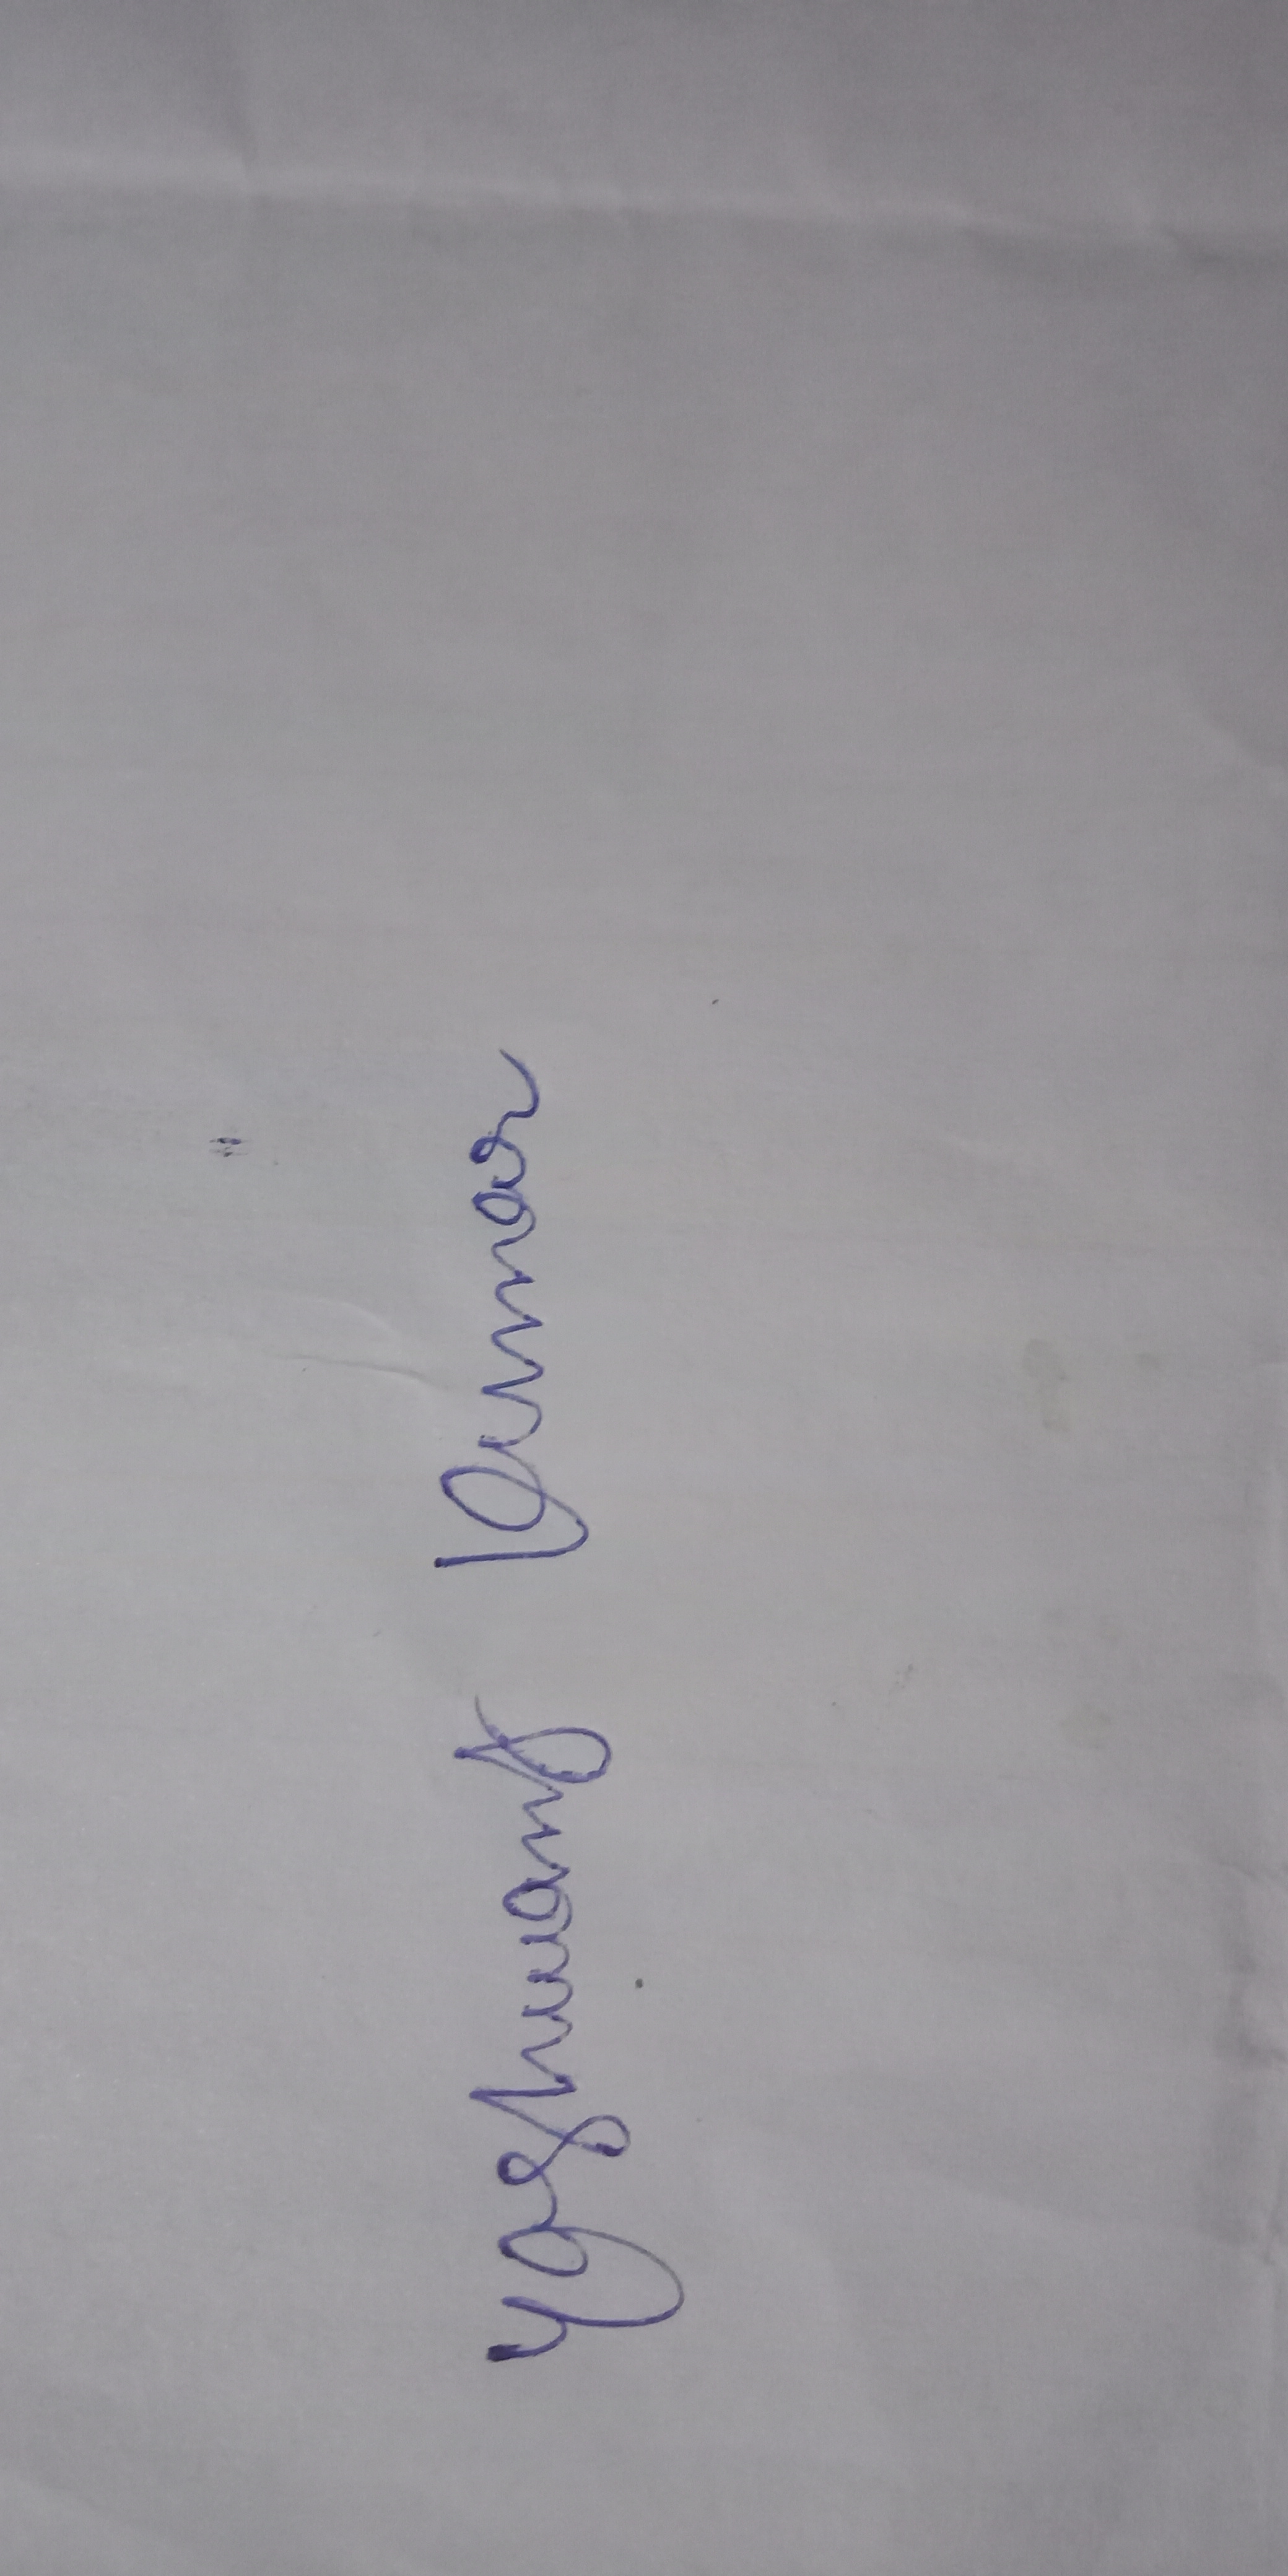 Yashwant Kumar